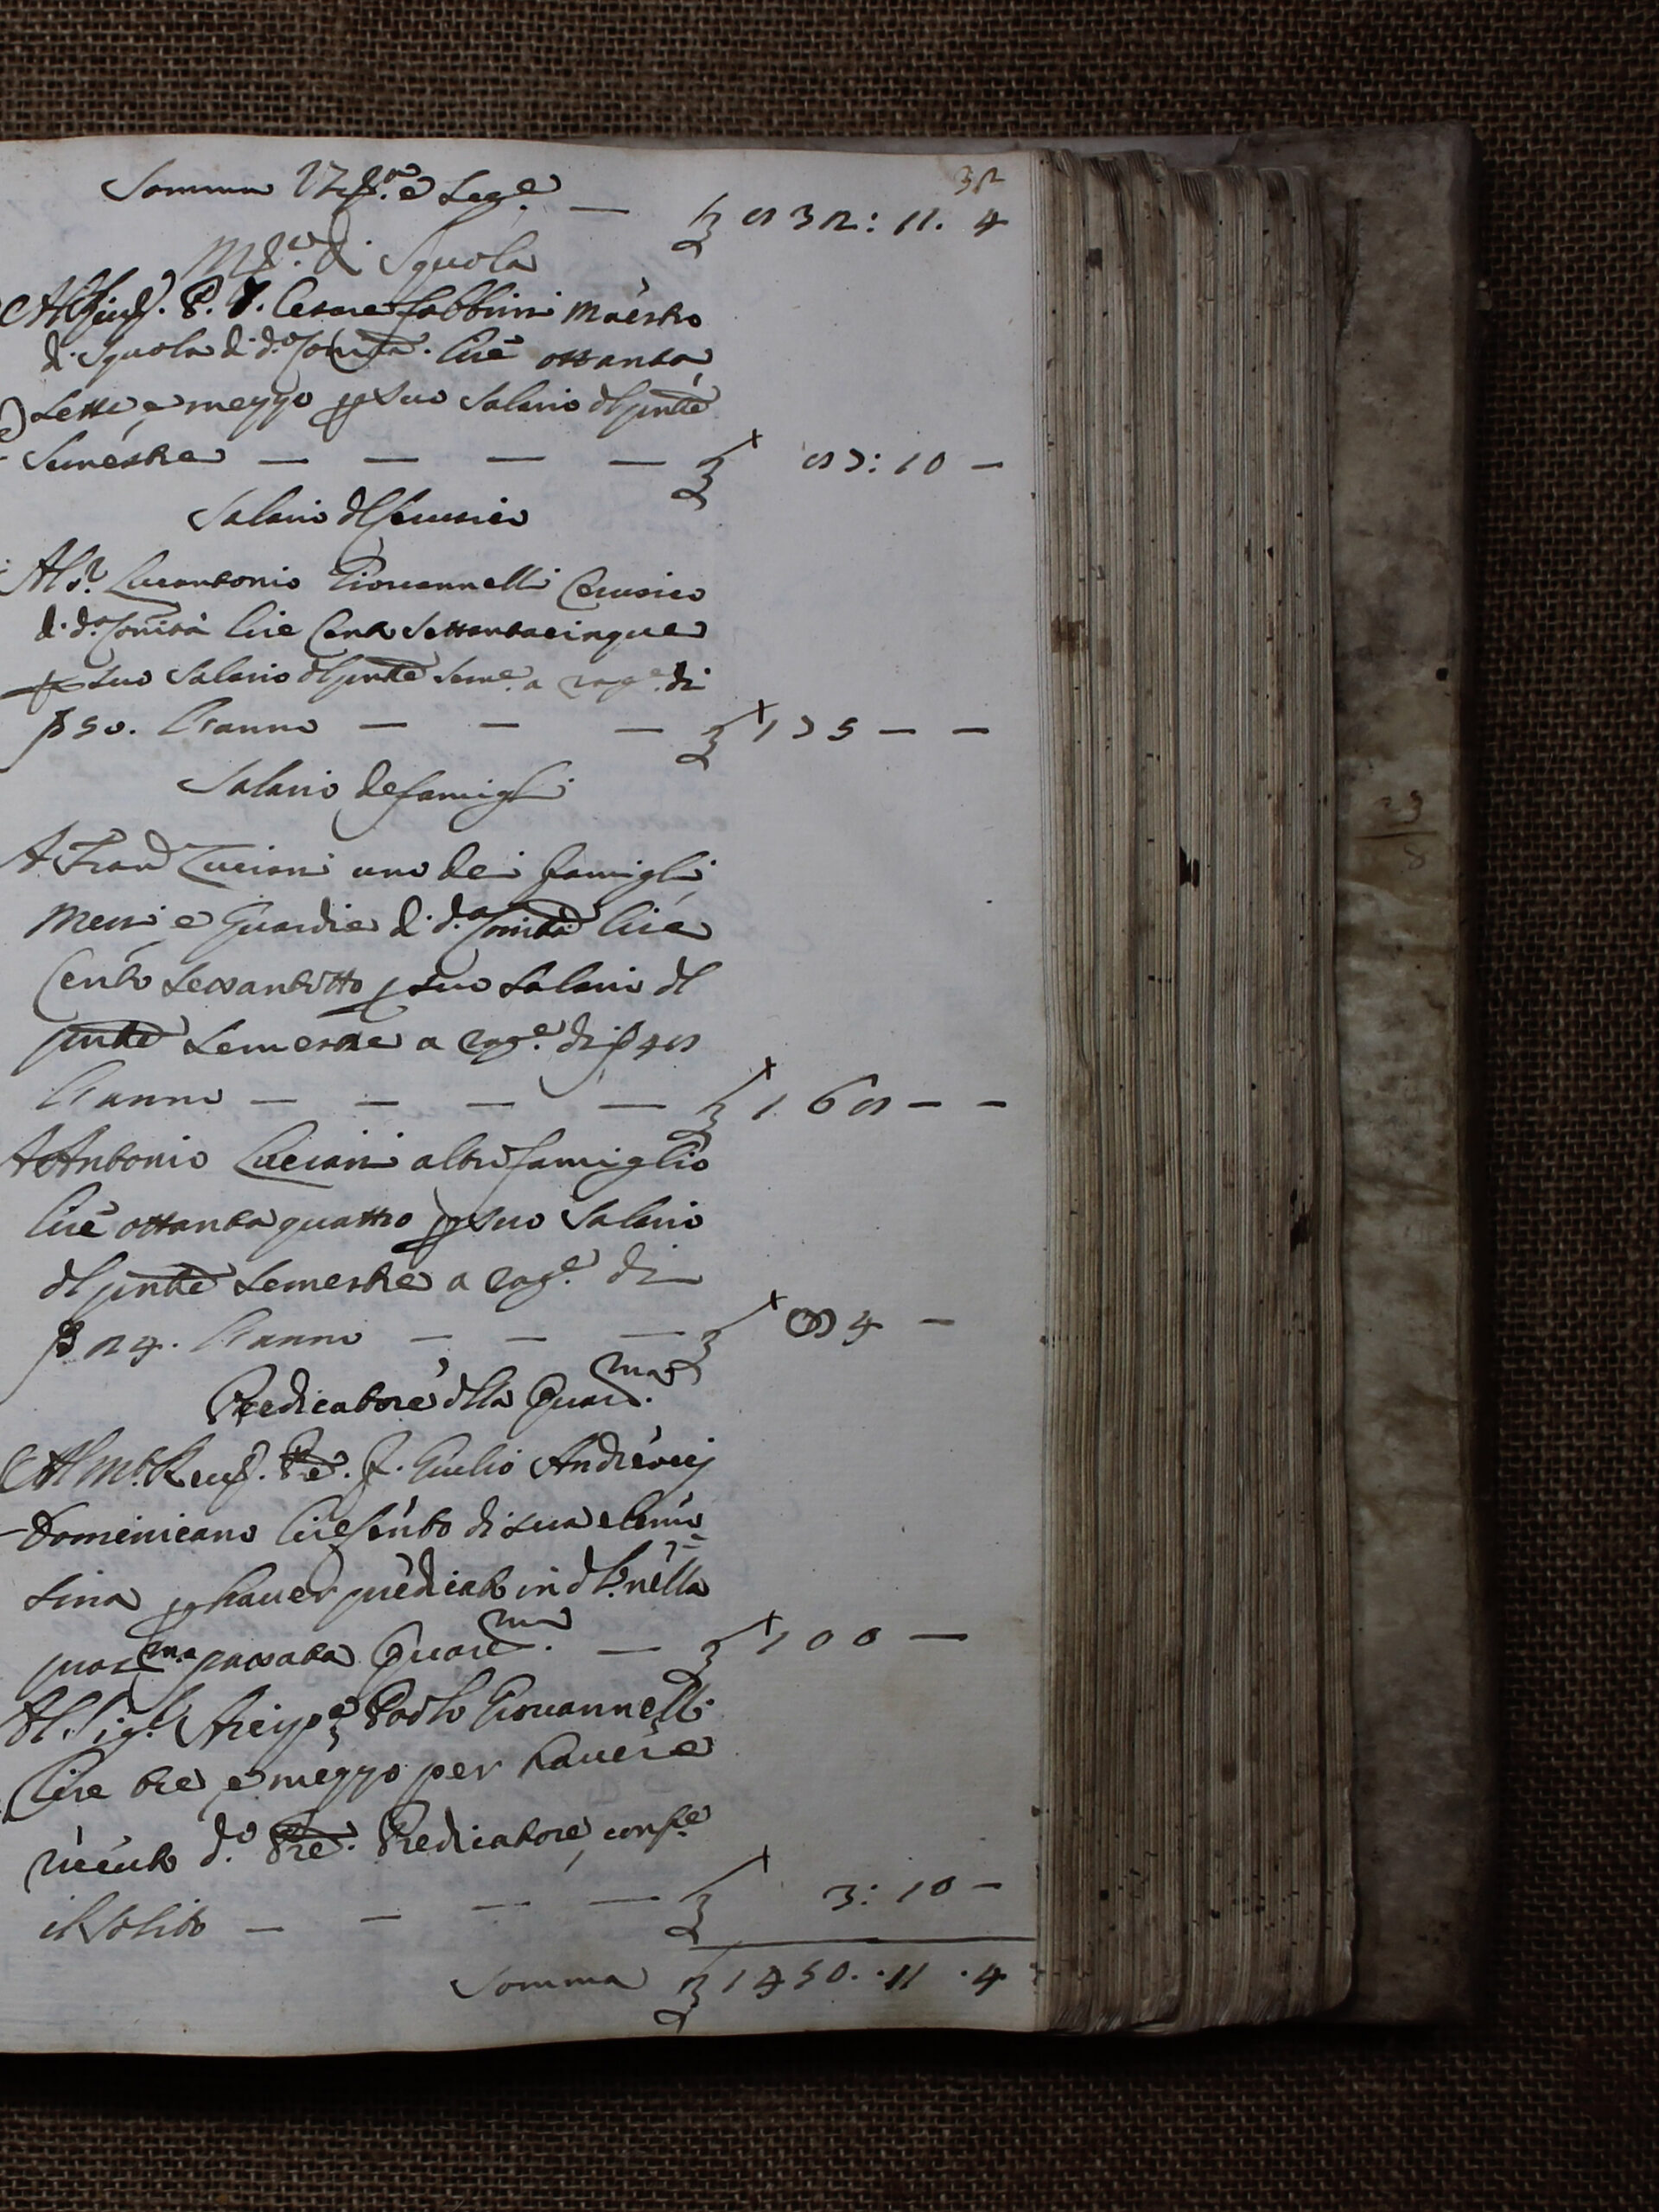 32
Somma
£ 832: 11. 4
M.ro di Squola
Cesare Fabbrini Maestro
di Squola di d.a Comtà. lire ottanta
sette, e mezzo p suo Salario dl pnte
Semestre — — — — £ 87: 10 —
Salario dl Cerusico
Al S.r Lucantonio Giovannelli Cerusico
di d.a Comità lire Cento Settantacinque
p suo Salario dl pnte Seme. a rag.e di
50. l'anno — — — £ 175 — —
Salario de famigli
A Fran.o Luciani uno dei famigli
Messi e Guardie di d.a Comità lire
Cento Sessantotto p suo Salario dl
pnte Semestre a rag.e di 48
l'anno — — — — £ 168 — —
A Antonio Luciani altro famiglio
lire ottanta quattro p suo Salario
dl pnte Semestre a rag.e di
24. l'anno — — — £ 84 —
Predicatore dlla Quar.ma
Al M.to Rev. Pre. F. Giulio
Domenicano lire Cento di sua elimo
sina p haver predicato in nella
pros.ma passata Quare.ma — £ 100 —
Al Sig.r Arcip.e Paolo Giovannelli
lire tre, e mezzo per havere
d.o Pre. Predicatore, conf.e
il Solito — — — — £ 3: 10 —
Somma £ 1450. 11. 4